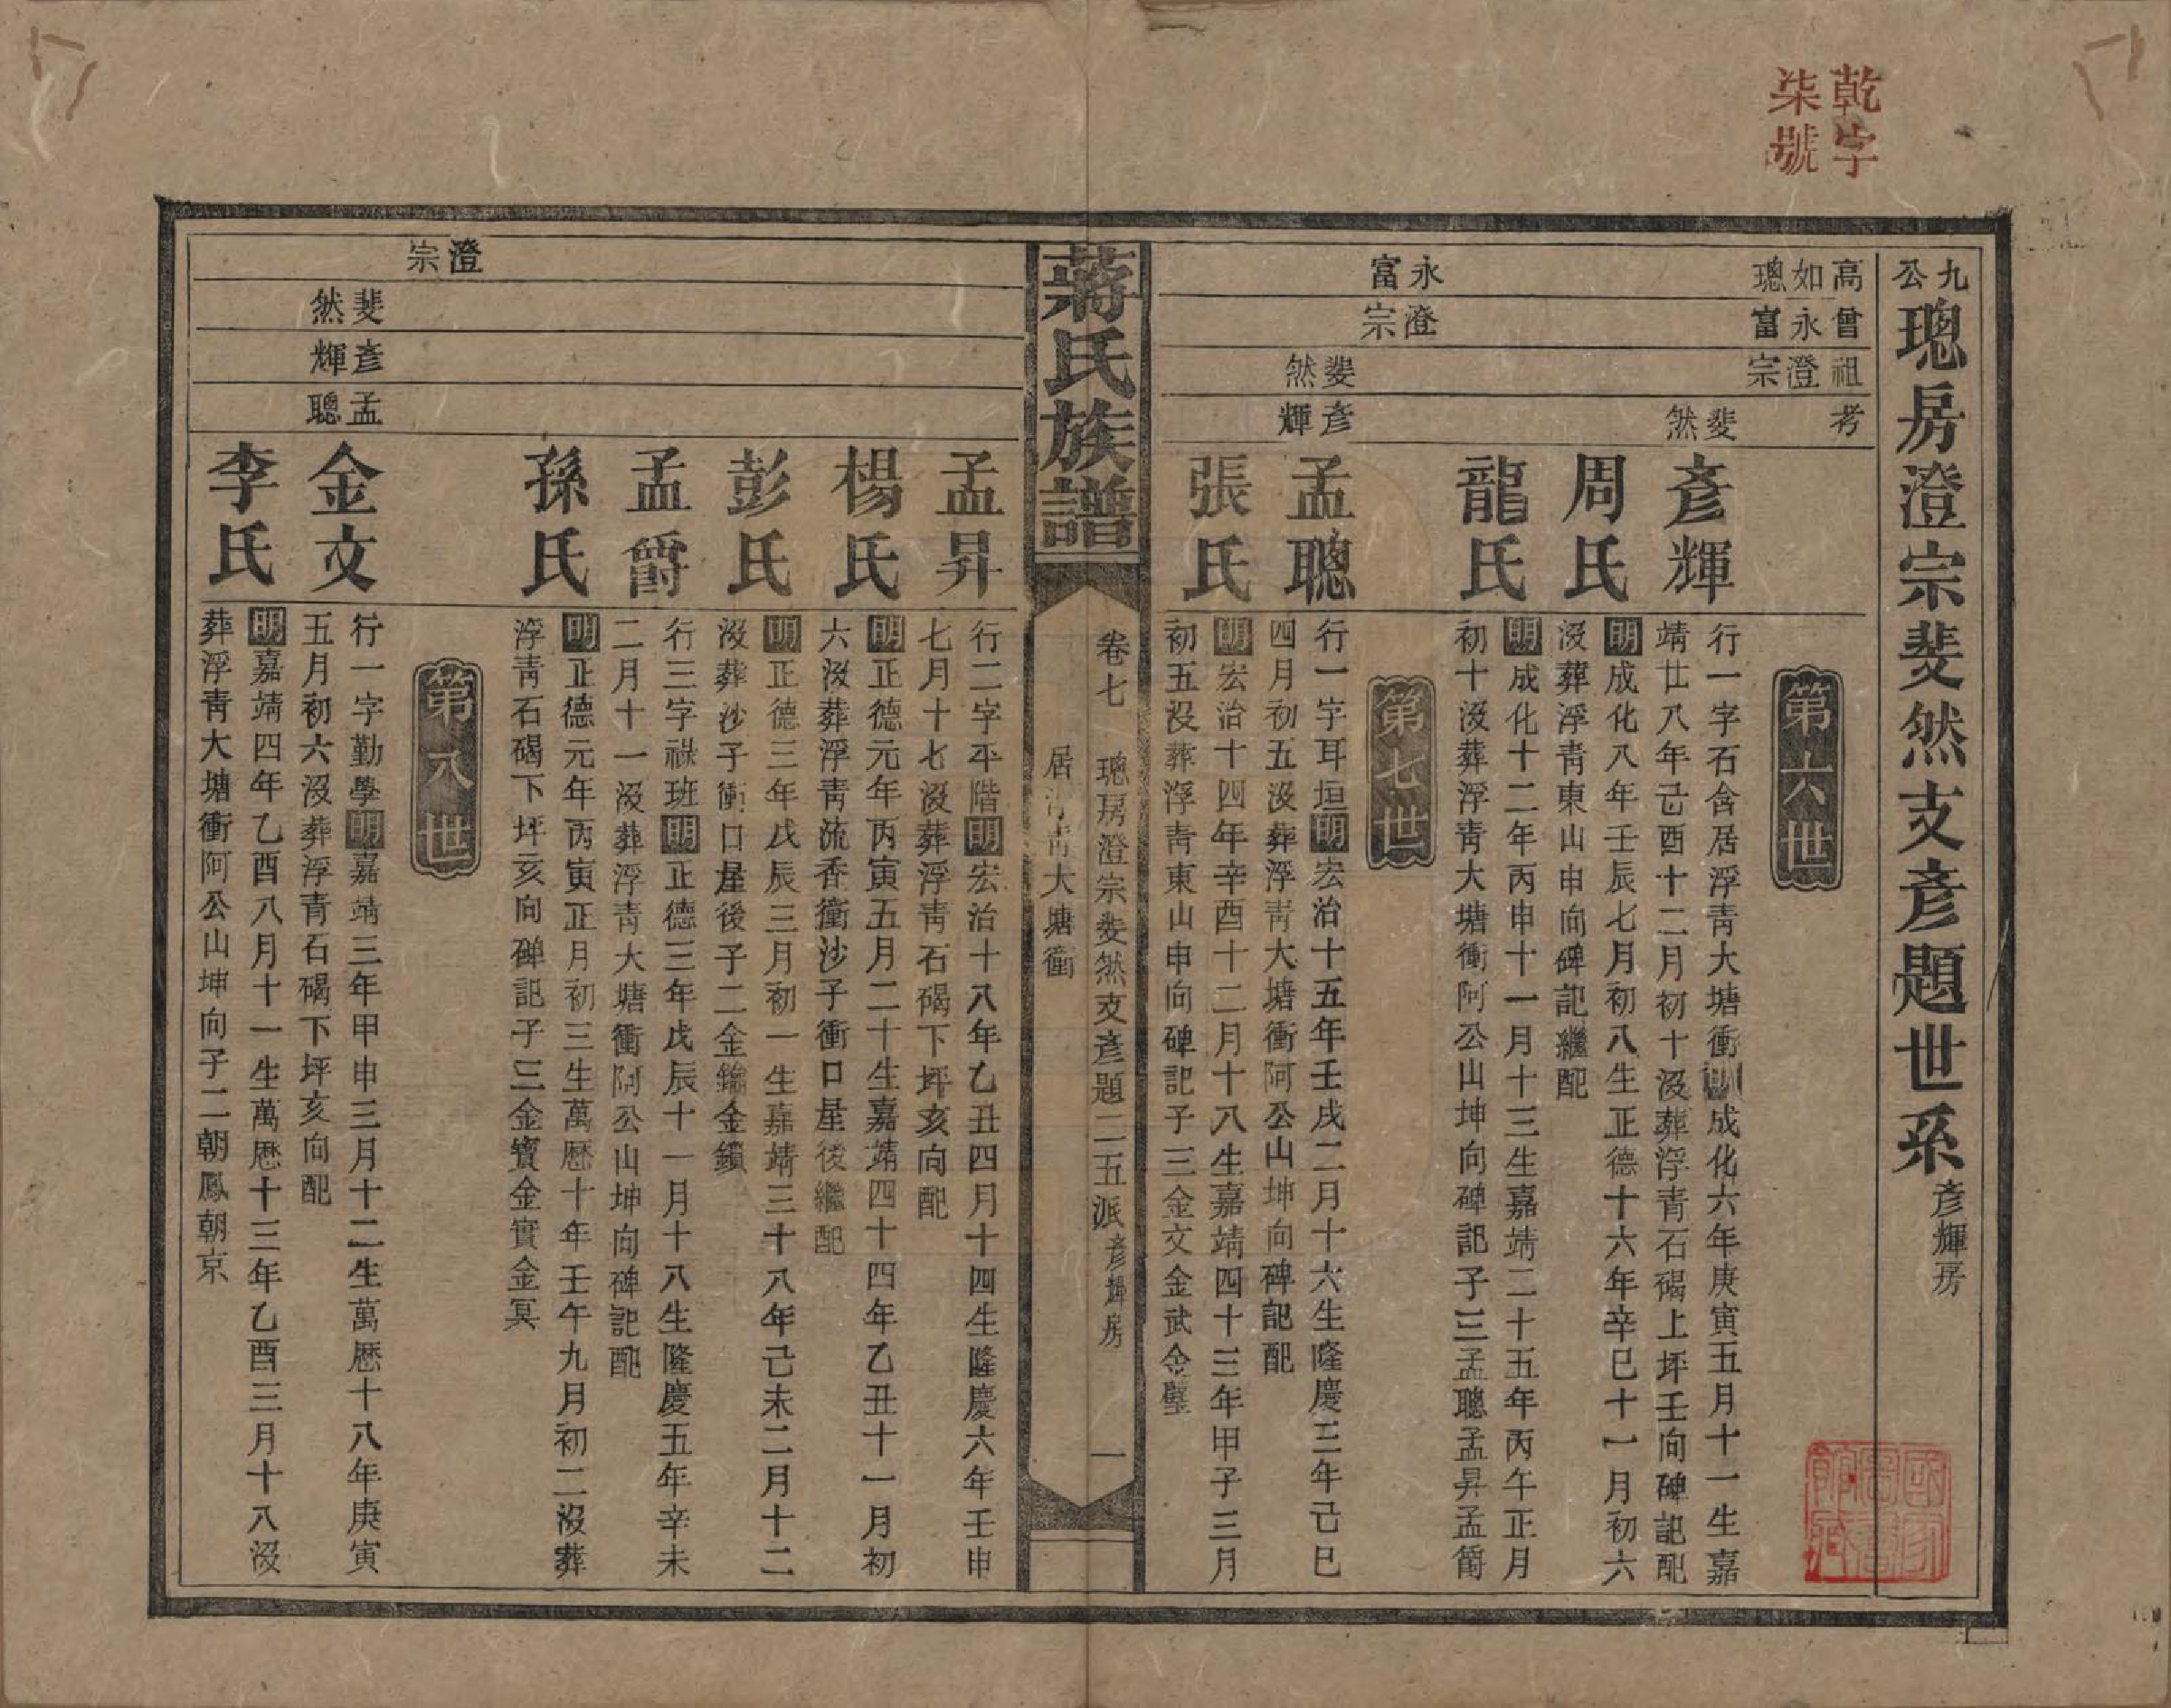 乾字
柒號
九公璁房澄宗斐然支彥題世系彥輝房
高如璁
曾永富
祖澄宗
考斐然
第六世
彥輝
行一字石含居浮青大塘衝明成化六年庚寅五月十一生嘉
靖廿八年己酉十二月初十沒葬浮青石碣上坪壬向碑記配
周氏
明成化八年壬辰七月初八生正德十六年辛巳十一月初六
沒葬浮青東山申向碑記繼配
龍氏
明成化十二年丙申十一月十三生嘉靖二十五年丙午正月
初十沒葬浮青大塘衝阿公山坤向碑記子三孟聰孟昇孟爵
永富
澄宗
斐然
彥輝
第七世
孟聰
行一字耳垣明宏治十五年壬戌二月十六生隆慶三年己巳
四月初五沒葬浮青大塘衝阿公山坤向碑記配
張氏
明宏治十四年辛酉十二月十八生嘉靖四十三年甲子三月
初五沒葬浮青東山申向碑記子三金文金武金璧
蔣氏族譜
卷七 璁房澄宗斐然支彥題二五派彥輝房 一
居浮青大塘衝
孟昇
行二字平階明宏治十八年乙丑四月十四生隆慶六年壬申
七月十七沒葬浮青石碣下坪亥向配
楊氏
明正德元年丙寅五月二十生嘉靖四十四年乙丑十一月初
六沒葬浮青流香衝沙子衝口屋後繼配
彭氏
明正德三年戊辰三月初一生嘉靖三十八年己未二月十二
沒葬沙子衝口屋後子二金錦金鎖
孟爵
行三字祿班明正德三年戊辰十一月十八生隆慶五年辛未
二月十一沒葬浮青大塘衝阿公山坤向碑記配
孫氏
明正德元年丙寅正月初三生萬歷十年壬午九月初二沒葬
浮青石碣下坪亥向碑記子三金寶金實金冥
澄宗
斐然
彥輝
孟聰
第八世
金文
行一字勤學明嘉靖三年甲申三月十二生萬歷十八年庚寅
五月初六沒葬浮青石碣下坪亥向配
李氏
明嘉靖四年乙酉八月十一生萬歷十三年乙酉三月十八沒
葬浮青大塘衝阿公山坤向子二朝鳳朝京